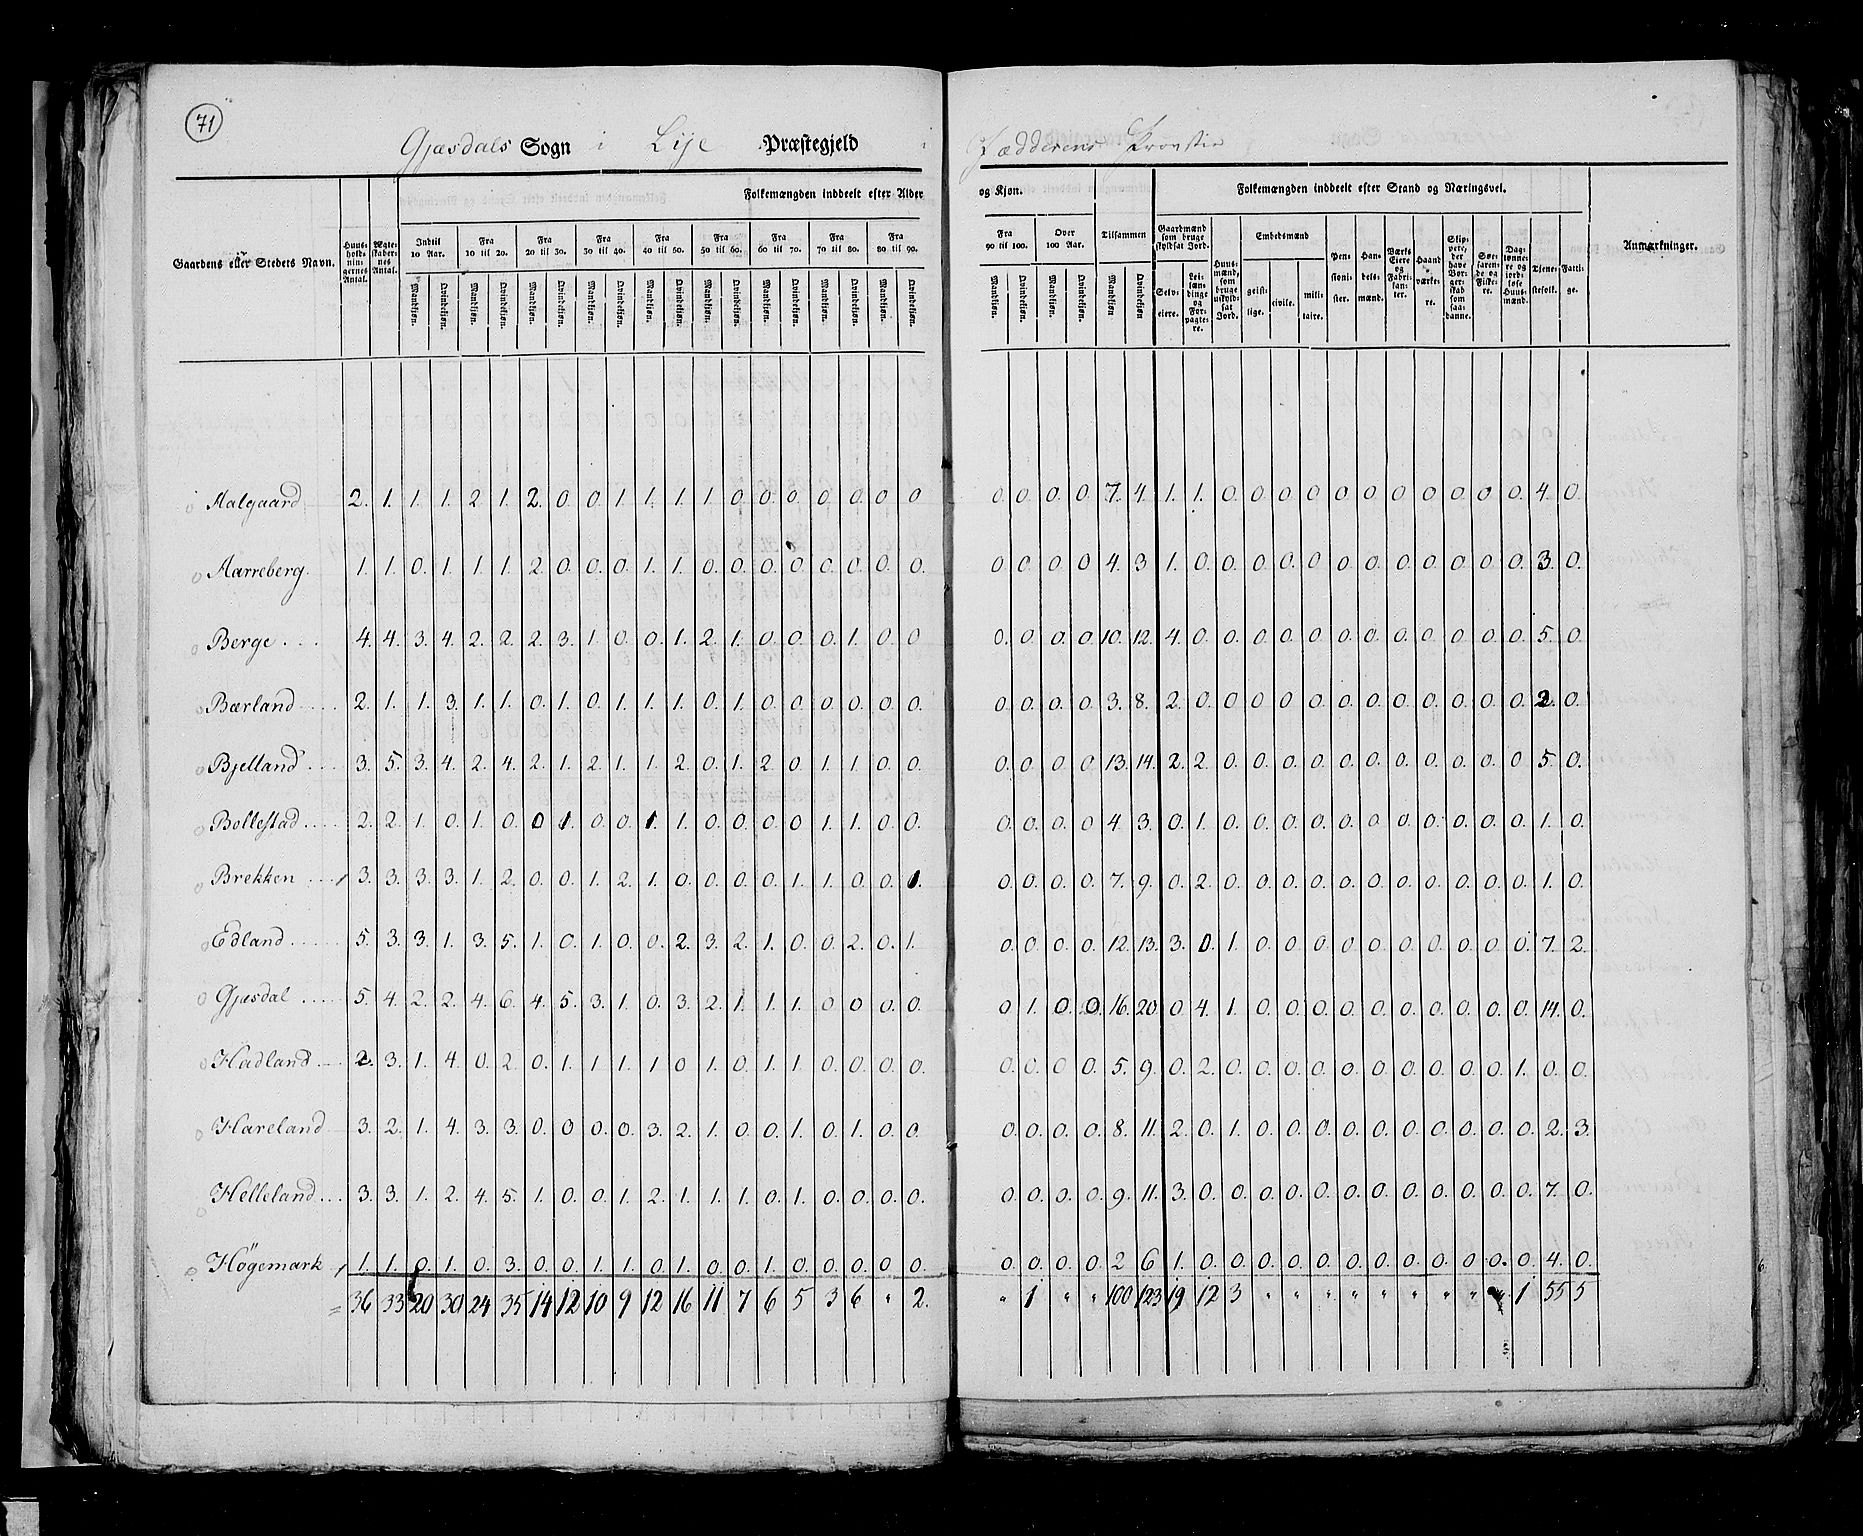 71
Gjæsdals Sogn i Lije Præstegjeld i Jædderens Provstie
Gaardens eller Stedets Navn.
Huusholdningernes Antal.
Ægteskabernes Antal.
Folkemængden inddeelt efter Alder og Kjøn.
Indtil 10 Aar. Fra 10 til 20. Fra 20 til 30. Fra 30 til 40. Fra 40 til 50. Fra 50 til 60. Fra 60 til 70. Fra 70 til 80. Fra 80 til 90. Fra 90 til 100. Over 100 Aar. Tilsammen
Mandkjøn. Qvindekjøn. Mandkjøn. Qvindekjøn. Mandkjøn. Qvindekjøn. Mandkjøn. Qvindekjøn. Mandkjøn. Qvindekjøn. Mandkjøn. Qvindekjøn. Mandkjøn. Qvindekjøn. Mandkjøn. Qvindekjøn. Mandkjøn. Qvindekjøn. Mandkjøn. Qvindekjøn. Mandkjøn. Qvindekjøn. Mandkjøn. Qvindekjøn
Folkemængden inddeelt efter Stand og Næringsvei.
Gaardmænd som bruge skyldsat Jord.
Selveiere.
Leilændinge og Forpagtere.
Huusmænd, som bruge uskyldsat Jord.
Embedsmænd
geistlige. civile. militaire.
Pensionister.
Handelsmænd.
Værks Eiere og Fabrikanter.
Haandværkere.
Slippere, der have Borgerskab som saadanne.
Søefarende og Fiskere.
Daglønnere og jordløse Huusmænd.
Tjenestefolk.
Fattige.
Anmærkninger.
Aalgaard 2. 1. 1. 1. 2. 1. 2. 0 0 1. 1. 1. 1. 0. 0. 0. 0. 0. 0. 0 0. 0. 0. 0. 7. 4. 1. 1. 0. 0. 0. 0. 0. 0. 0. 0. 0. 0. 0. 4. 0.
Aarreberg. 1. 1. 0. 1. 1. 1. 2. 0. 0. 0. 1. 1. 0. 0. 0. 0. 0. 0. 0. 0. 0. 0. 0. 0 4. 3. 1. 0. 0. 0. 0. 0. 0. 0. 0. 0. 0. 0. 0. 3. 0.
Berge . . . 4. 4. 3. 4. 2. 2. 2. 3. 1. 0. 0. 1. 2. 1. 0. 0. 0. 1. 0. 0 0. 0. 0. 0 10. 12. 4. 0. 0. 0. 0. 0. 0. 0. 0. 0. 0. 0. 0. 5. 0.
Bærland . . . 2. 1. 1. 3. 1. 1. 0. 1. 0. 1. 1. 1. 0. 1. 0. 0. 0. 0. 0. 0. 0. 0. 0. 0. 3. 8. 2. 0. 0. 0. 0. 0. 0. 0. 0. 0. 0. 0. 0. 2. 0.
Bjelland . . . 3. 5. 3. 4. 2. 4. 2. 1. 2. 1. 1. 2. 0. 1. 2. 0. 1. 1. 0. 0. 0. 0. 0. 0 13. 14. 2. 2. 0. 0. 0. 0. 0. 0. 0. 0. 0. 0. 0 5. 0.
Bollestad . . . 2. 2. 1. 0. 1. 0. 0 1. 0. 0. 1. 1. 0. 0. 0. 0 1. 1. 0. 0. 0. 0. 0. 0 4. 3. 0. 1. 0. 0. 0. 0. 0. 0. 0. 0. 0. 0. 0. 1. 0.
Brekken . . . 3. 3. 3. 3. 1. 2. 0. 0. 1. 2. 1. 0. 0. 0. 0. 1. 1. 0. 0. 1. 0. 0. 0. 0. 7. 9. 0. 2. 0. 0. 0. 0. 0. 0. 0. 0. 0. 0. 0. 1. 0.
Edland . . . 5. 3. 3. 1. 3. 5. 1. 0. 1. 0. 0. 2. 3. 2. 1. 0. 0. 2. 0. 1. 0. 0. 0. 0. 12. 13. 3. 0. 1. 0. 0. 0. 0. 0. 0. 0. 0. 0. 0. 7. 2.
Gjæsdal . . . 5. 4. 2. 2. 4. 6. 4. 5. 3. 1. 0. 3. 2. 1. 1. 1. 0. 0. 0. 0. 0 1. 0. 0. 16. 20. 0 4. 1. 0. 0. 0. 0. 0. 0. 0. 0. 0. 0. 14. 0.
Hadland . . . 2. 3. 1. 4. 0. 2. 0. 1. 1. 1. 1 0 1. 0. 1. 1. 0. 0. 0. 0. 0. 0. 0 0. 5. 9. 0. 2. 0. 0. 0. 0. 0. 0. 0. 0. 0. 0. 1. 0. 0.
Hareland 3. 2. 1. 4. 3. 3. 0. 0 0. 0. 3. 2. 1. 0 0. 1. 0. 1. 0. 0. 0. 0. 0. 0. 8. 11. 2. 0. 1. 0. 0. 0. 0. 0. 0. 0. 0. 0. 0. 2. 3.
Helleland . . . 3. 3. 1. 2. 4. 5. 1. 0. 0. 1. 2. 1. 1. 1. 0. 1. 0. 0. 0. 0. 0. 0. 0. 0. 9. 11. 3. 0. 0. 0. 0. 0. 0. 0. 0. 0. 0. 0. 0. 7. 0.
Högemark 1. 1. 0. 1. 0. 3. 0. 0. 1. 1. 0. 1. 0. 0. 1. 0. 0. 0. 0 0. 0. 0. 0. 0. 2 6 1. 0. 0. 0. 0. 0. 0. 0. 0. 0. 0. 0. 0. 4. 0.
36 33 20 30 24 35 14 12 10 9 12 16 11 7 6 5 3 6 " 2. " 1 " " 100 123 19 12 3 " " " " " " " " " 1 55 5